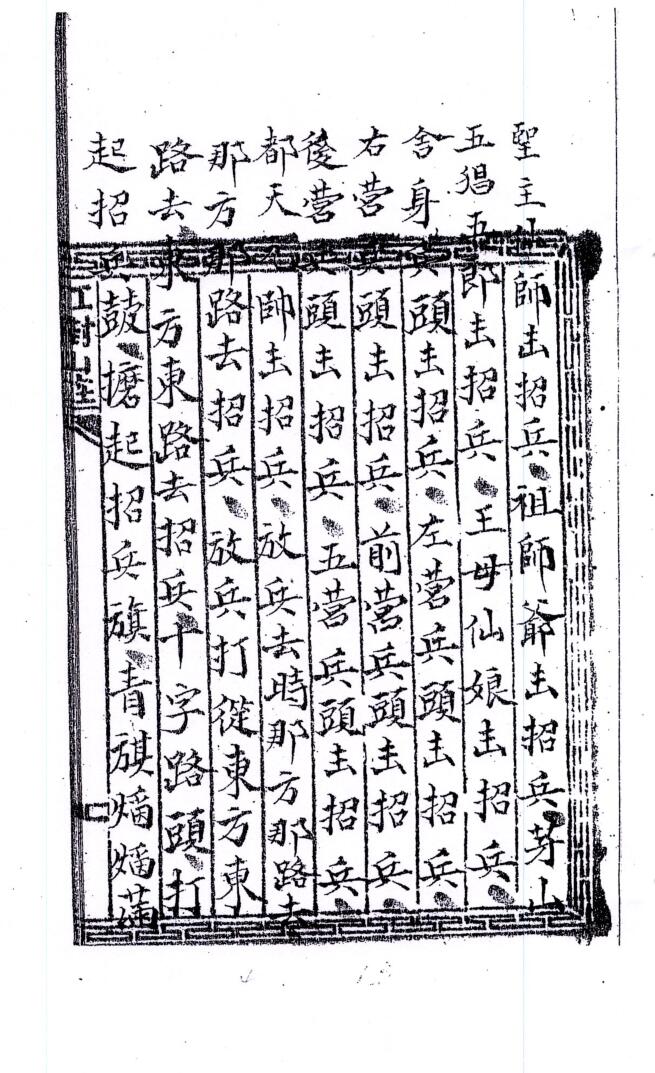 聖主仙師主招兵、祖師爺主招兵茅山
五猖五郎主招兵、王母仙娘主招兵、
舍身兵頭主招兵、左营兵頭主招兵
右营兵頭主招兵、前营兵頭主招兵、
後营兵頭主招兵、五营兵頭主招兵、
都天帥主招兵、放兵去時那方那路去
那方那路去招兵、放兵打從東方東
路去東方東路去招兵十字路頭、打
起招兵鼓、撂起招兵旗、青旗燔燔